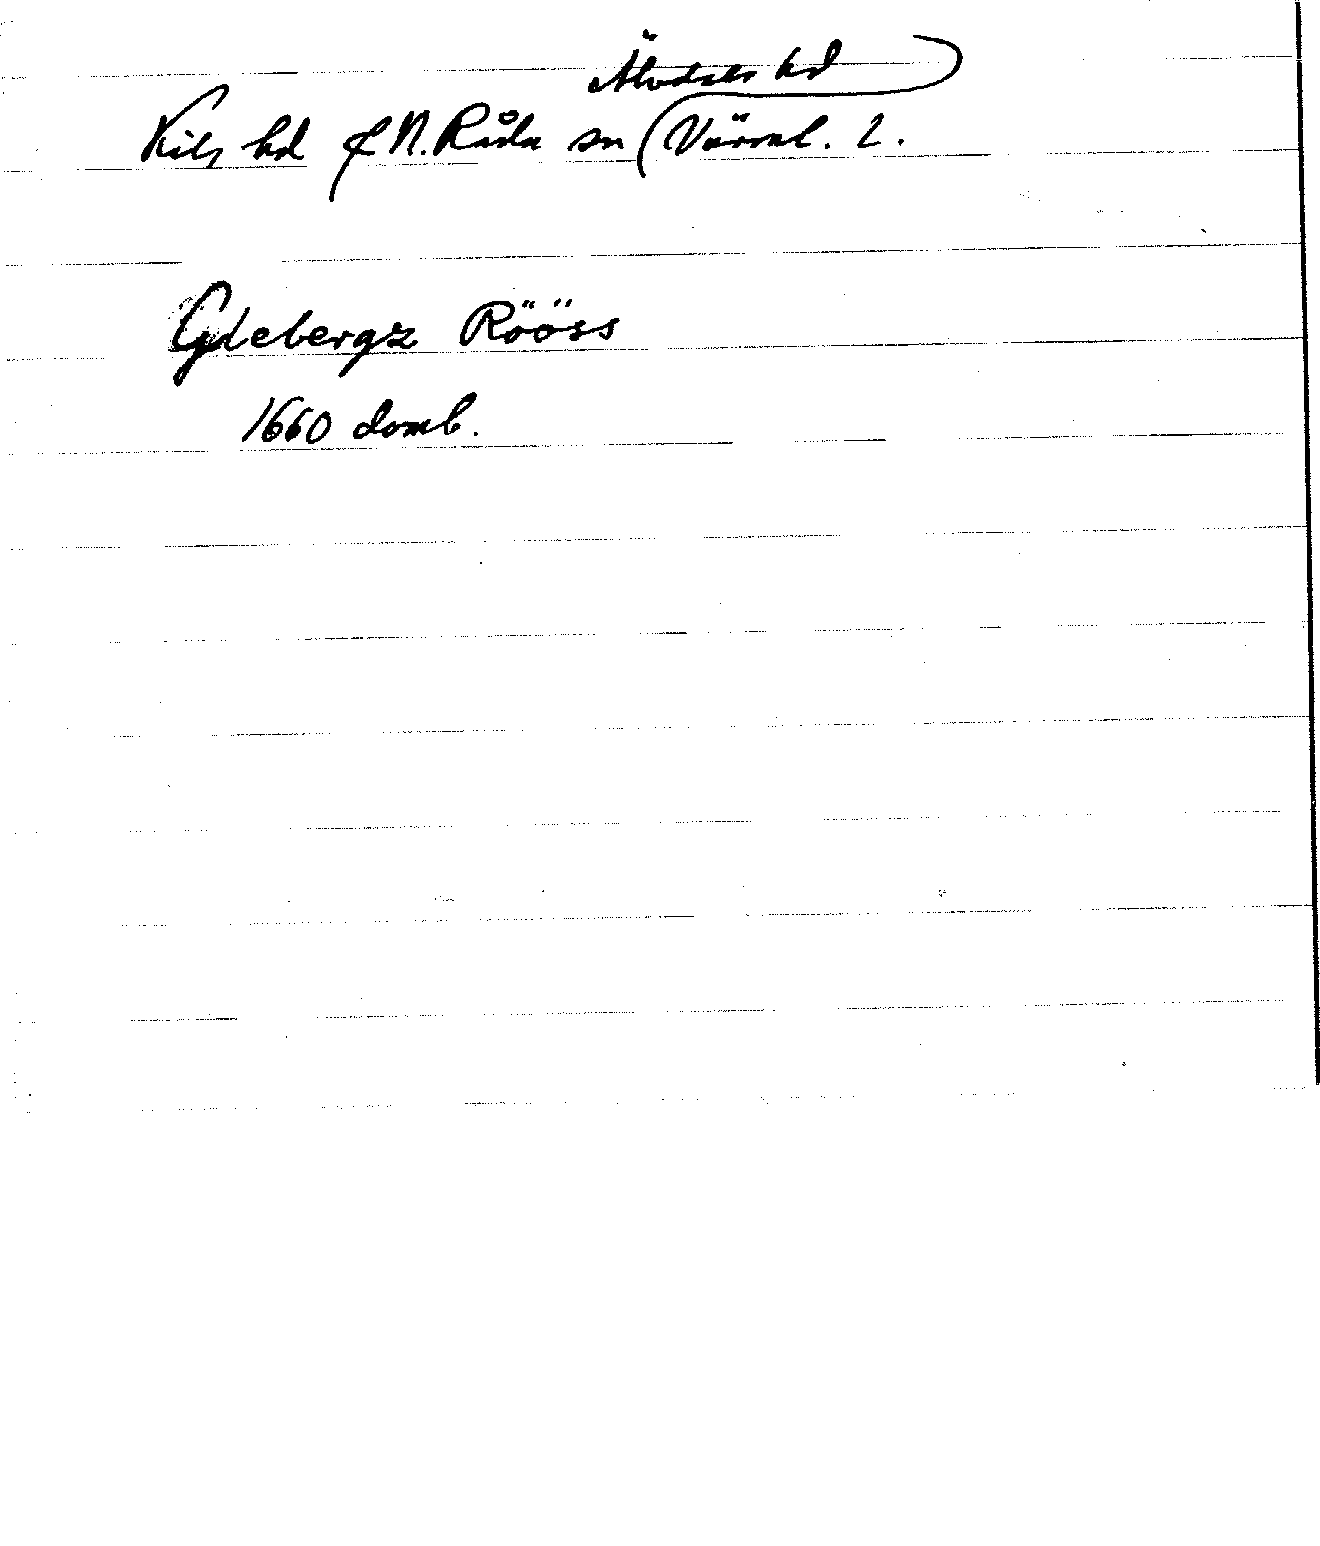 Älvdals hd
Kils hd & N. Råda sn (Värml. l.
Glebergz Rööss
1660 domb.